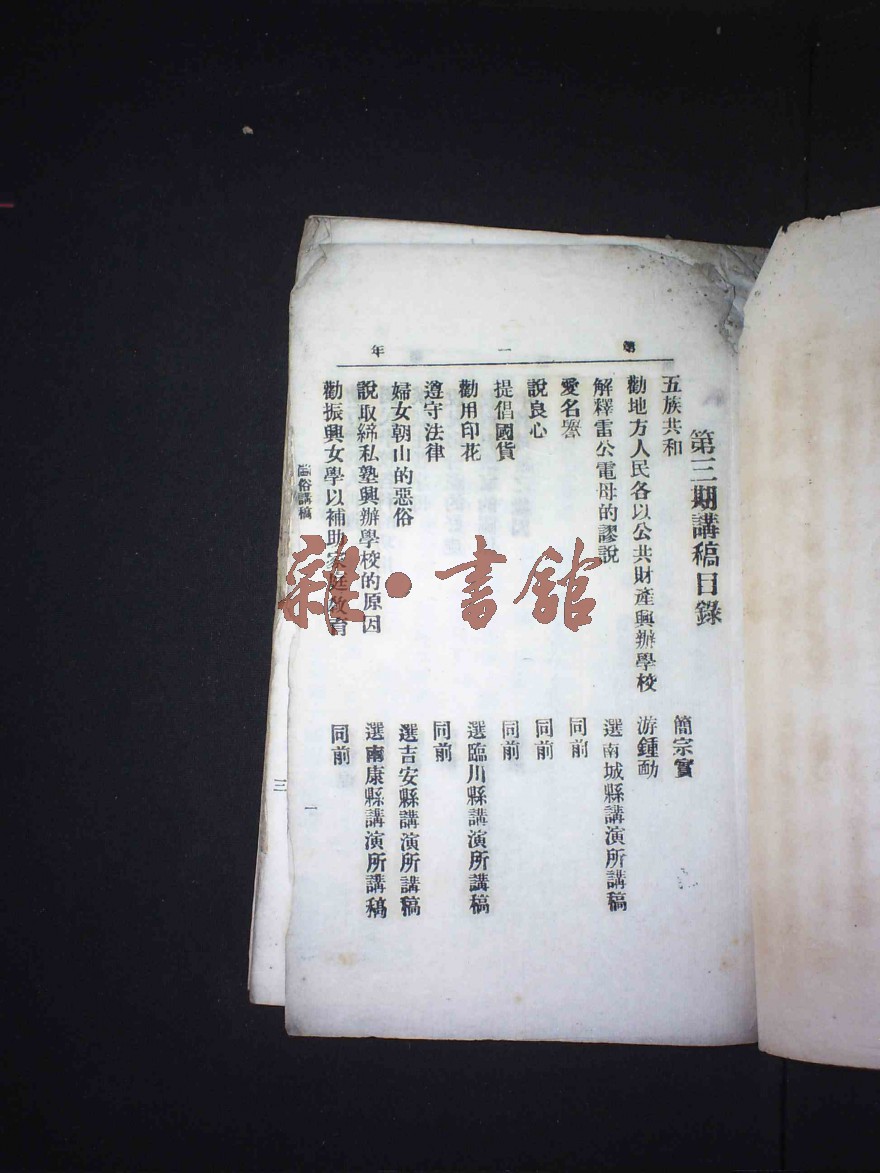 第一年
第三期講稿目錄
五族共和 簡宗實
勸地方人民各以公共財產興辦學校 游鍾勳
解釋雷公電母的謬說 選南城縣講演所講稿
愛名譽 同前
說良心 同前
提倡國貨 同前
勸用印花 選臨川縣講演所講稿
遵守法律 同前
婦女朝山的惡俗 選吉安縣講演所講稿
說取締私塾興辦學校的原因 選南康縣講演所講稿
勸振興女學以補助家庭教育 同前
俗講稿
一
三
雜·書館